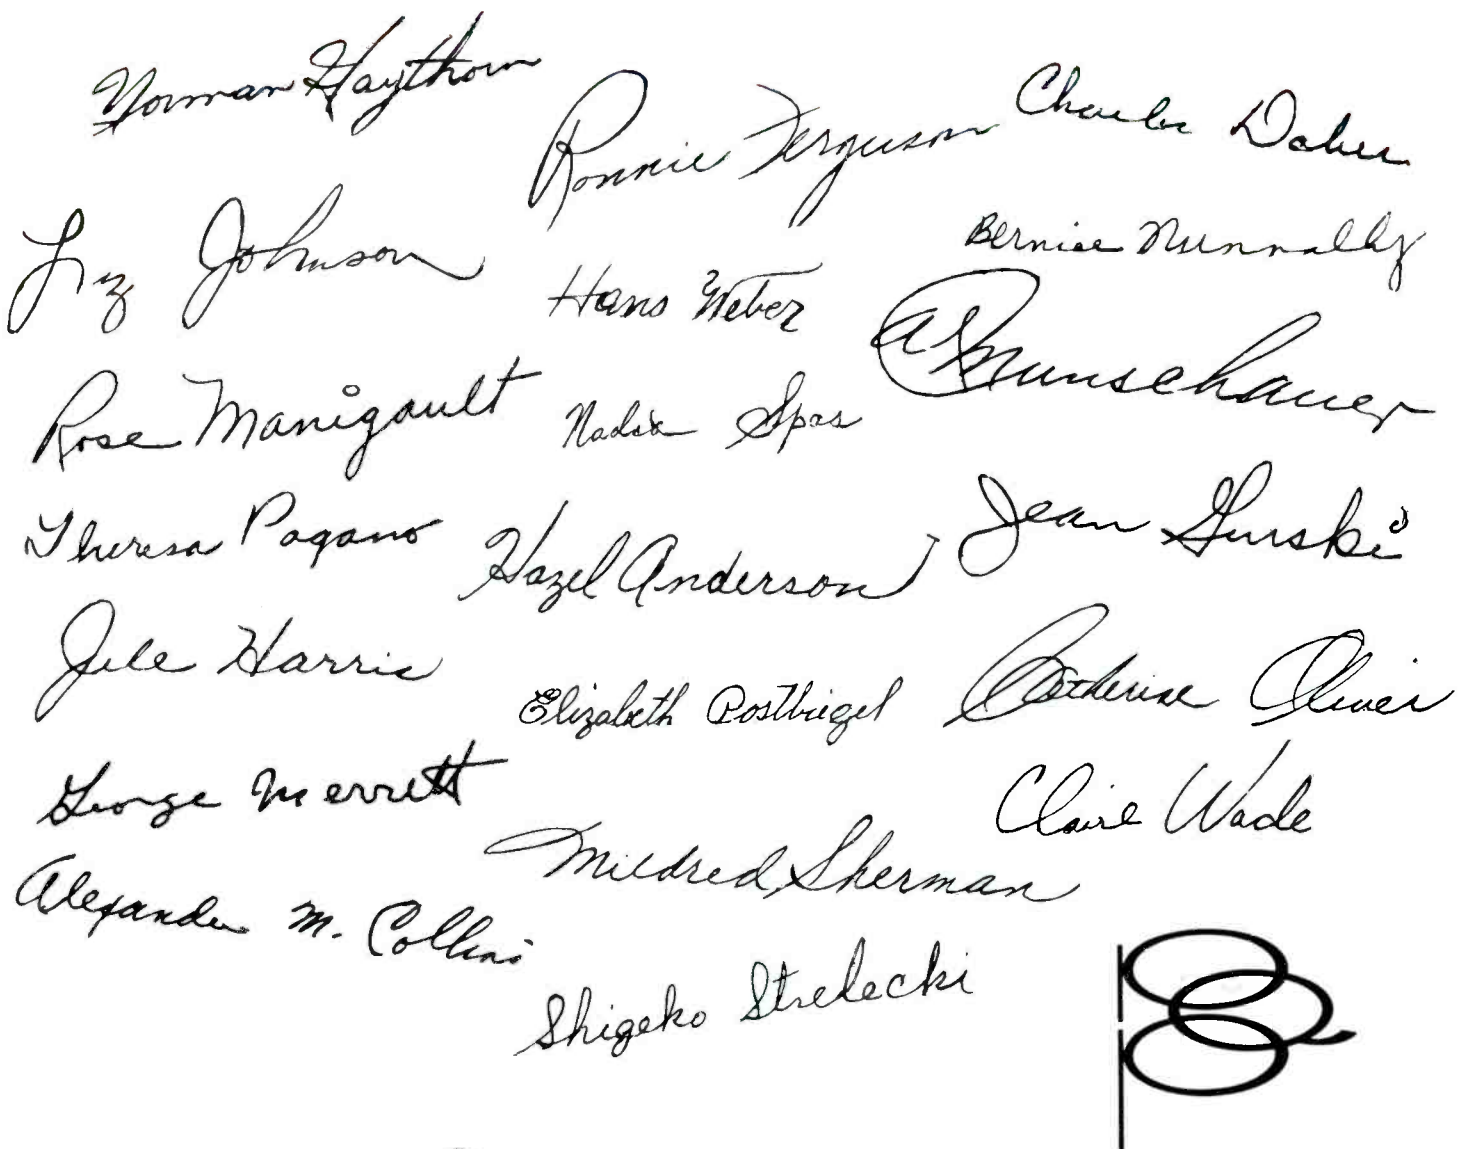 Norman Haythorn
Ronnie Ferguson
Charles Daber
Liz Johnson
Bernice Nunnally
Hans Weber
A Munschauer
Rose Manigault
Nadia Spas
Theresa Pagano
Hazel Anderson
Jean Gurski
Harris
Elizabeth
Catherine Oliver
George Merrett
Claire Wade
Mildred Sherman
Alexander M. Collins
Shigeko Strelecki